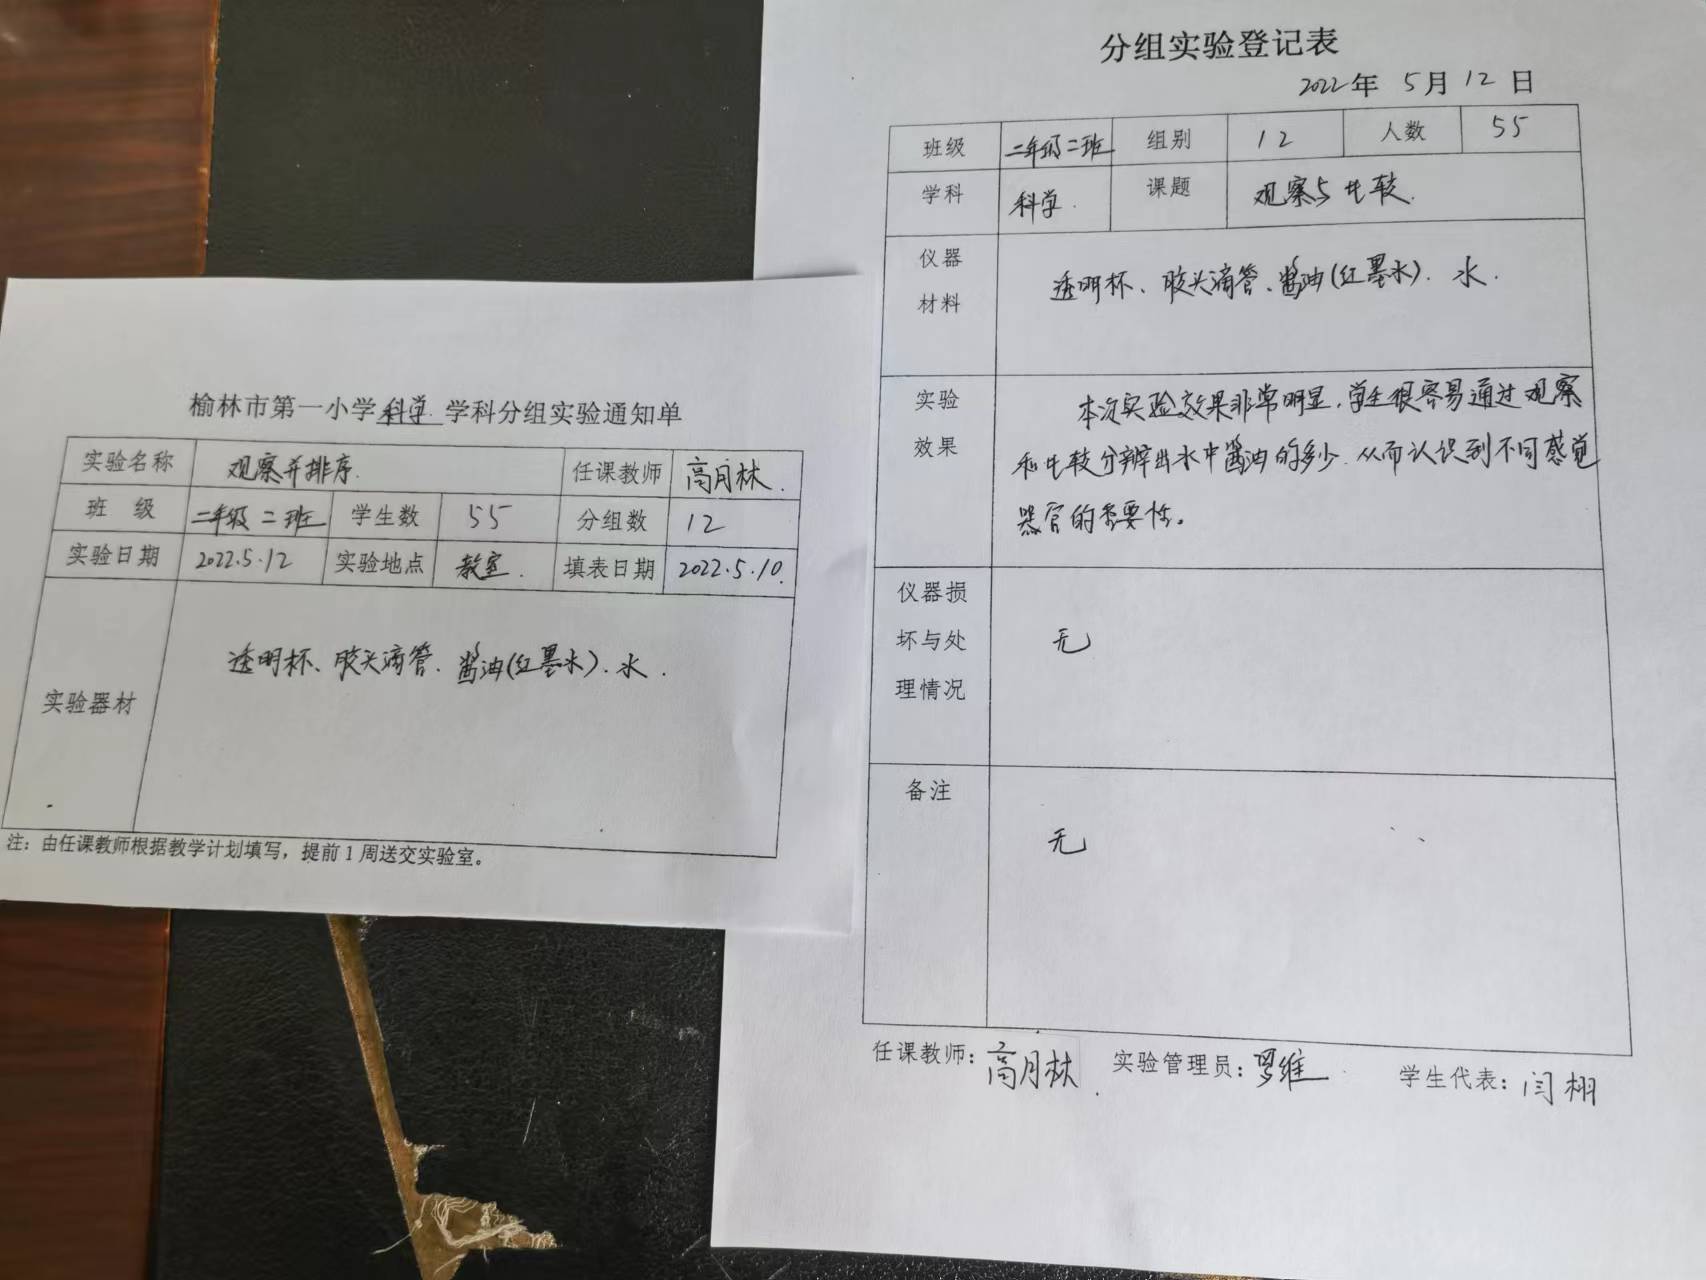 榆林市第一小学科学学科分组实验通知单
实验名称 观察并排序. 任课教师 高月林.
班 级 二年级二班 学生数 55 分组数 12
实验日期 2022.5.12 实验地点 教室. 填表日期 2022.5.10.
实验器材 透明杯、胶头滴管、酱油(红墨水).水.
注：由任课教师根据教学计划填写，提前1周送交实验室。
分组实验登记表
2022年 5月12日
班级 二年级二班 组别 12 人数 55
学科 科学. 课题 观察与比较.
仪器
材料
透明杯、胶头滴管、酱油(红墨水).水.
实验
效果
本次实验效果非常明显,学生很容易通过观察
和比较分辨出水中酱油的多少.从而认识到不同感觉
器官的重要性。
仪器损
坏与处
理情况
无
备注
无
任课教师：高月林. 实验管理员：罗维 学生代表：闫栩